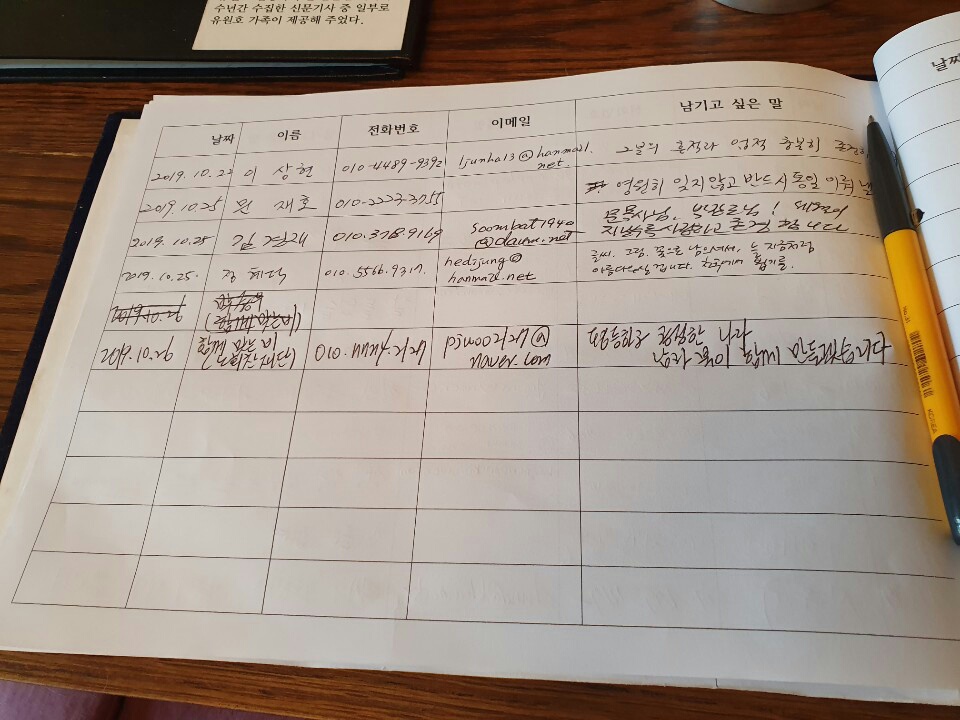 수년간 수집한 신문기사 중 일부로
유원호 가족이 제공해 주었다.
날짜 이름 전화번호 이메일 남기고 싶은 말
2019. 10. 22 이 상현 010-4489-9392 ljunha13@hanmail.
net. 그분의 흔적과 업적 충분히
2019. 10. 25 원 재호 010-2223-3755 영원히 잊지않고 반드시 통일 이뤄
2019. 10. 25 김경재 010.3768.9169 soombat1940
@daum.net 문목사님, 박장로님!
사랑하고 존경 합니다
2019. 10. 25. 정 혜덕 010. 5566. 9317. hedijung@
hanmail.net 글씨. 그림. 꽃으로 남으셔서, 늘 지금처럼
아름다우실 겁니다.
2019.10.26
2019. 10. 26 함께 맞는 비
(노회찬재단) 010. 2127 pjw002127@
naver.com 평등하고 공정한 나라
함께 만들겠습니다
날짜
KOREA